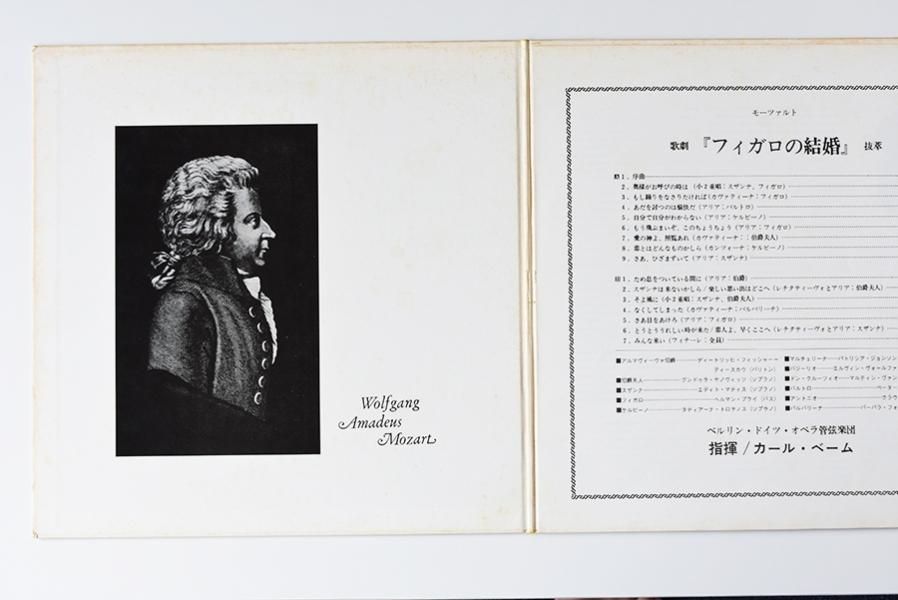 Wolfgang
Amadeus
Mozart
モーツァルト
歌劇『フィガロの結婚』抜萃
1. 序曲
2. 奥様がお呼びの時は (小2重唱:スザンナ、フィガロ)
3. もし踊りをなさりたければ(カヴァティーナ:フィガロ)
4. あだを討つのは愉快だ (アリア:バルトロ)
5. 自分で自分がわからない (アリア:ケルビーノ)
6. もう飛ぶまいぞ、このちょうちょう (アリア:フィガロ)
7. 愛の神よ、照覧あれ (カヴァティーナ:伯爵夫人)
8. 恋とはどんなものかしら (カンツォーナ:ケルビーノ)
9. さあ、ひざまずいて (アリア:スザンナ)
1. ため息をついている間に (アリア:伯爵)
2. スザンナは来ないかしら/楽しい思い出はどこへ (レチタティーヴォとアリア:伯爵夫人)
3. そよ風に (小2重唱:スザンナ、伯爵夫人)
4. なくしてしまった (カヴァティーナ:バルバリーナ)
5. さあ目をあけろ (アリア:フィガロ)
6. とうとううれしい時が来た/恋人よ、早くここへ (レチタティーヴォとアリア:スザンナ)
7. みんな来い (フィナーレ:全員)
■アルマヴィーヴァ伯爵 ディートリッヒ・フィッシャー=
ディースカウ (バリトン)
■伯爵夫人 グンドゥラ・ヤノヴィッツ (ソプラノ)
■スザンナ エディト・マティス (ソプラノ)
■フィガロ ヘルマン・プライ (バス)
■ケルビーノ タティアーナ・トロヤノス (ソプラノ)
■マルチェリーナ パトリシア・ジョンソン
■バジーリオ エルヴィン・ヴォールファ
■ドン・クルーツィオ マルティン・ヴァン
■バルトロ ペーター
■アントニオ クラウ
■バルバリーナ バーバラ・フォ
ベルリン・ドイツ・オペラ管弦楽団
指揮/カール・ベーム